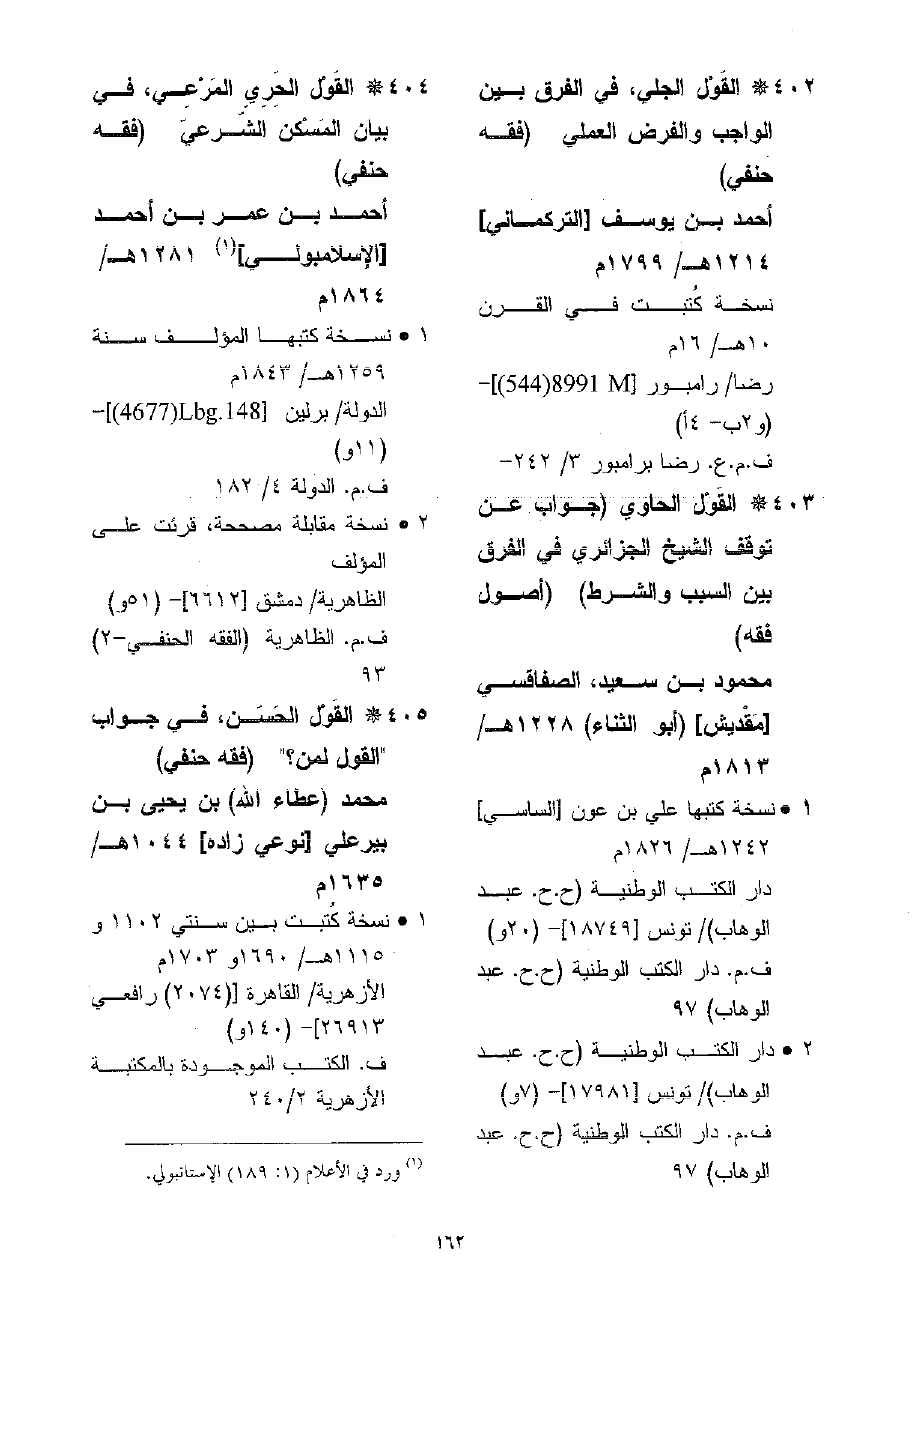 ٤٠٢* القَوْل الجلي، في الفرق بين
الواجب والفرض العملي (فقه
حنفي)
أحمد بن يوسف [التركماني]
١٢١٤هـ/ ١٧٩٩م
نسخة كُتبت في القرن
١٠هـ/ ١٦م
رضا/ رامبور [8991 M(544)]-
(و٢ب- ٤أ)
ف.م.ع. رضا برامبور ٣/ ٢٤٢-
٤٠٣* القَوْل الحاوي (جواب عن
توقف الشيخ الجزائري في الفرق
بين السبب والشرط) (أصول
فقه)
محمود بن سعيد، الصفاقسي
[مَقْديش] (أبو الثناء) ١٢٢٨هـ/
١٨١٣م
١ • نسخة كتبها علي بن عون [الساسي]
١٢٤٢هـ/ ١٨٢٦م
دار الكتب الوطنية (ح.ح. عبد
الوهاب)/ تونس [١٨٧٤٩]- (٢٠و)
ف.م. دار الكتب الوطنية (ح.ح. عبد
الوهاب) ٩٧
٢ • دار الكتب الوطنية (ح.ح. عبد
الوهاب)/ تونس [١٧٩٨١]- (٧و)
ف.م. دار الكتب الوطنية (ح.ح. عبد
الوهاب) ٩٧
٤٠٤* القَوْل الحَرِي المَرْعِي، في
بيان المَسْكن الشرعيّ (فقه
حنفي)
أحمد بن عمر بن أحمد
[الإسلامبولي](١) ١٢٨١هـ/
١٨٦٤م
١ • نسخة كتبها المؤلف سنة
١٢٥٩هـ/ ١٨٤٣م
الدولة/ برلين [Lbg.148(4677)]-
(١١و)
ف.م. الدولة ٤/ ١٨٢
٢ • نسخة مقابلة مصححة، قرئت على
المؤلف
الظاهرية/ دمشق [٦٦١٢]- (٥١و)
ف.م. الظاهرية (الفقه الحنفي-٢)
٩٣
٤٠٥* القَوْل الحَسَن، في جواب
"القول لمن؟" (فقه حنفي)
محمد (عطاء الله) بن يحيى بن
بيرعلي [نوعي زاده] ١٠٤٤هـ/
١٦٣٥م
١ • نسخة كُتبت بين سنتي ١١٠٢ و
١١١٥هـ/ ١٦٩٠و ١٧٠٣م
الأزهرية/ القاهرة [(٢٠٧٤) رافعي
٢٦٩١٣]- (١٤٠و)
ف. الكتب الموجودة بالمكتبة
الأزهرية ٢٤٠/٢
(١) ورد في الأعلام (١: ١٨٩) الإستانبولي.
١٦٢